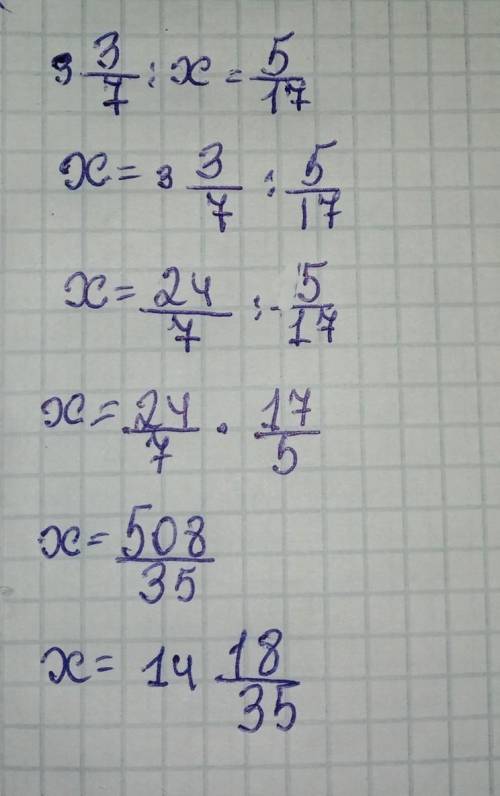 3 3/7 : x = 5/17
x = 3 3/7 : 5/17
x = 24/7 : 5/17
x = 24/7 · 17/5
x = 508/35
x = 14 18/35